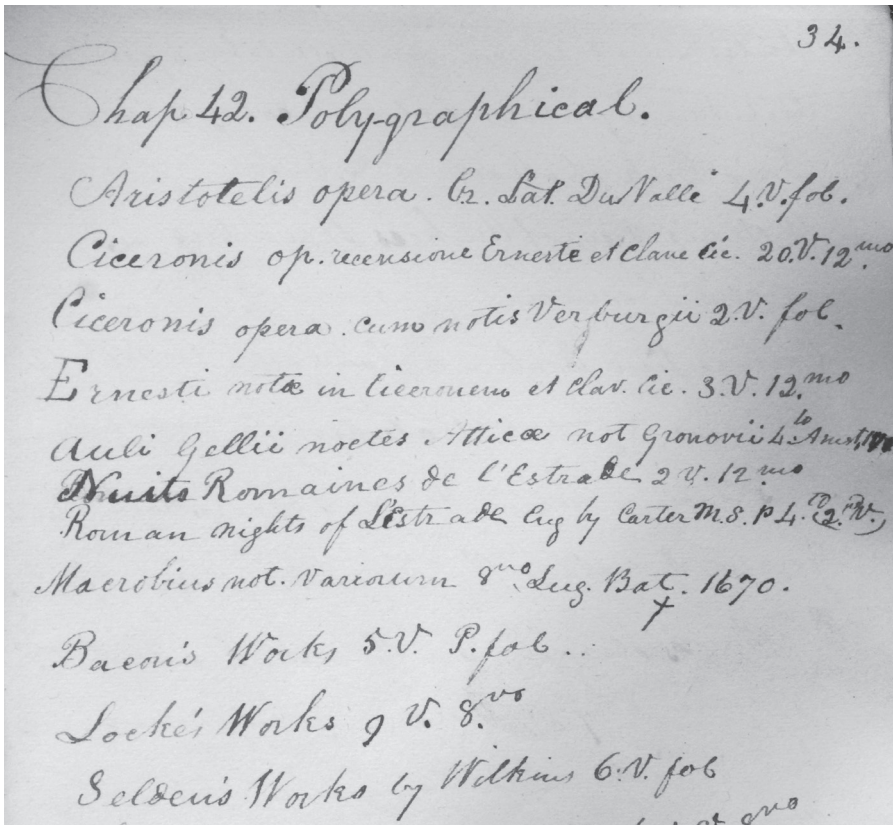 34.
Chap 42. Poly-graphical.
Aristotelis opera. Gr. Lat. Du Valle 4.V. fol.
Ciceronis op. recensione Ernesti et clave Cic. 20.V. 12.mo
Ciceronis opera. cum notis Verburgii 2.V. fol.
Ernesti notæ in Ciceronem et Clav. Cic. 3.V. 12.mo
Auli Gellii noctes Atticæ not Gronovii 4.to Amst.
Nuits Romaines de l'Estrade 2 V. 12 mo
Roman nights of L'Estrade Eng by Carter M.S. P 4.to (2.d V.)
Macrobius not. variorum 8vo Lug. Bat. 1670.
Bacon's Works 5.V. P. fol..
Locke's Works 9 V. 8.vo
Selden's Works by Wilkins 6.V. fol
V. 8vo